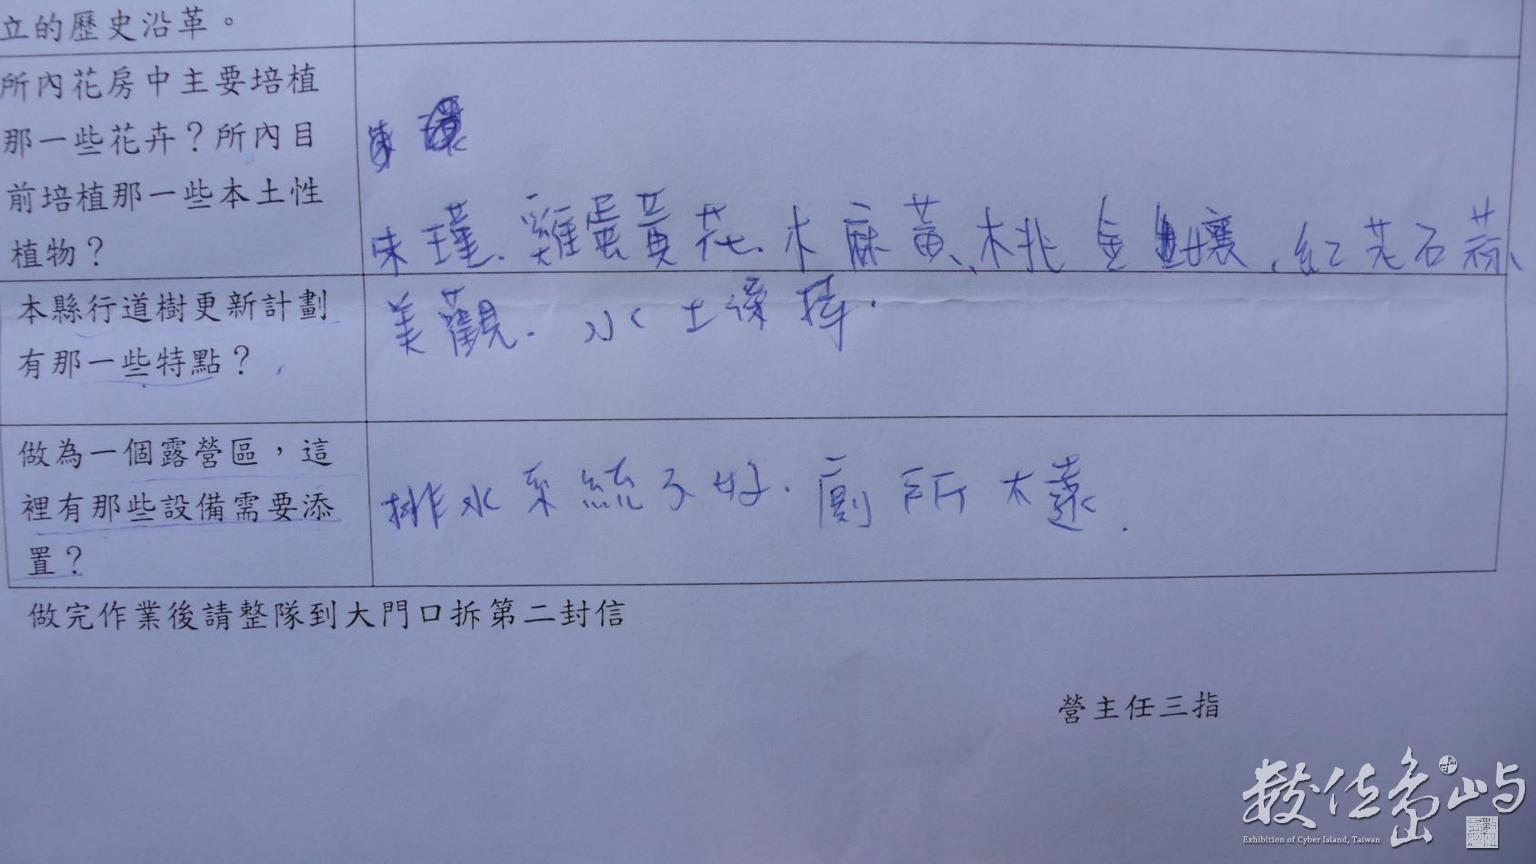 立的歷史沿革。
所內花房中主要培植
那一些花卉？所內目
前培植那一些本土性
植物？
朱瑾、雞蛋黃花、木麻黃、桃金孃、紅花石蒜、
本縣行道樹更新計劃
有那一些特點？
美觀. 水土保持.
做為一個露營區，這
裡有那些設備需要添
置？
排水系統不好. 廁所太遠.
做完作業後請整隊到大門口拆第二封信
營主任三指
數位島嶼
Exhibition of Cyber Island, Taiwan